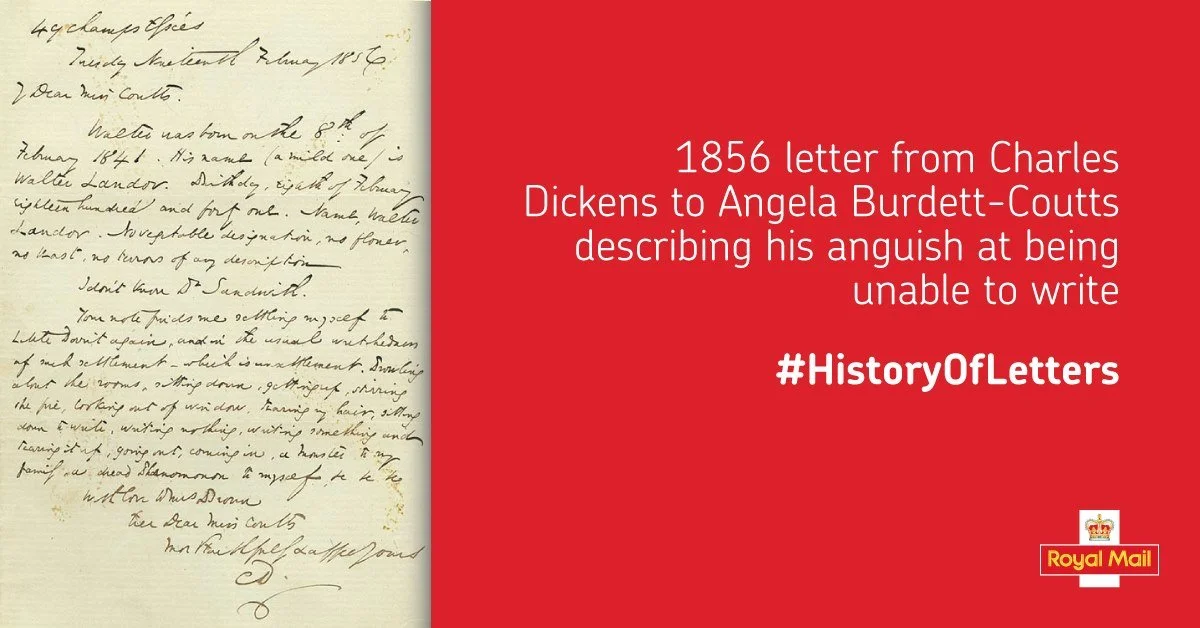 49 Champs Elysées
Tuesday Nineteenth February 1856
My Dear Miss Coutts.
Walter was born on the 8th of
February 1841. His name (a mild one) is
Walter Landor. Birthday, eighth of February
eighteen hundred and forty one. Name, Walter
Landor. No vegetable designation, no flower,
no roast, no terrors of any description
I don't know Dr Sandwith.
Your note finds me settling myself to
Little Dorrit again, and in the usual wretchedness
of such settlement – which is unsettlement. Prowling
about the rooms, sitting down, getting up, stirring
the fire, looking out of window, tearing my hair, sitting
down to write, writing nothing, writing something and
tearing it up, going out, coming in, a monster to my
family, a dread Phenomenon to myself, &c &c &c
With love to Mrs Brown
Ever Dear Miss Coutts
Most Faithfully & affecy Yours
CD.
1856 letter from Charles
Dickens to Angela Burdett-Coutts
describing his anguish at being
unable to write
#HistoryOfLetters
Royal Mail